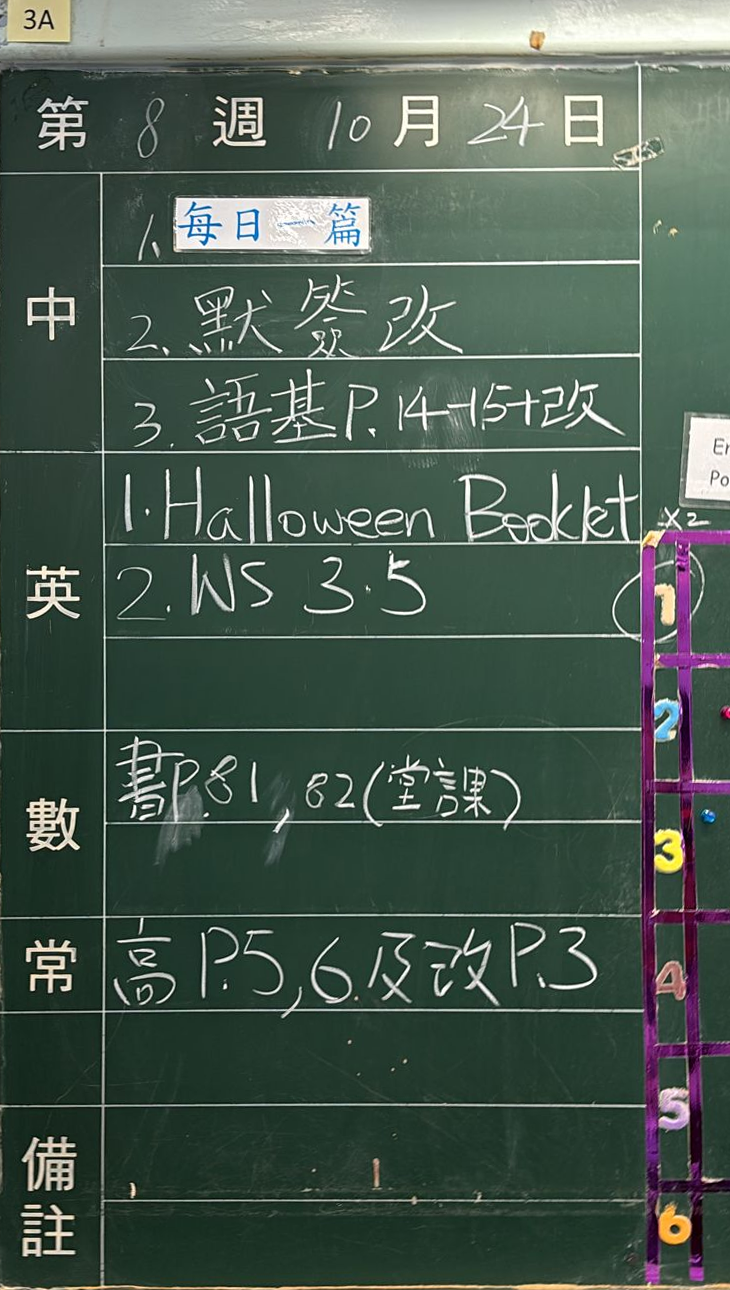 3A
第 8 週 10 月 24 日
中
1. 每日一篇
2. 默簽改
3. 語基P.14-15+改
英
1. Halloween Booklet
2. WS 3.5
數
書P.81, 82(堂課)
常
高 P.5, 6.及改P.3
備註
x2
1
2
3
4
5
6